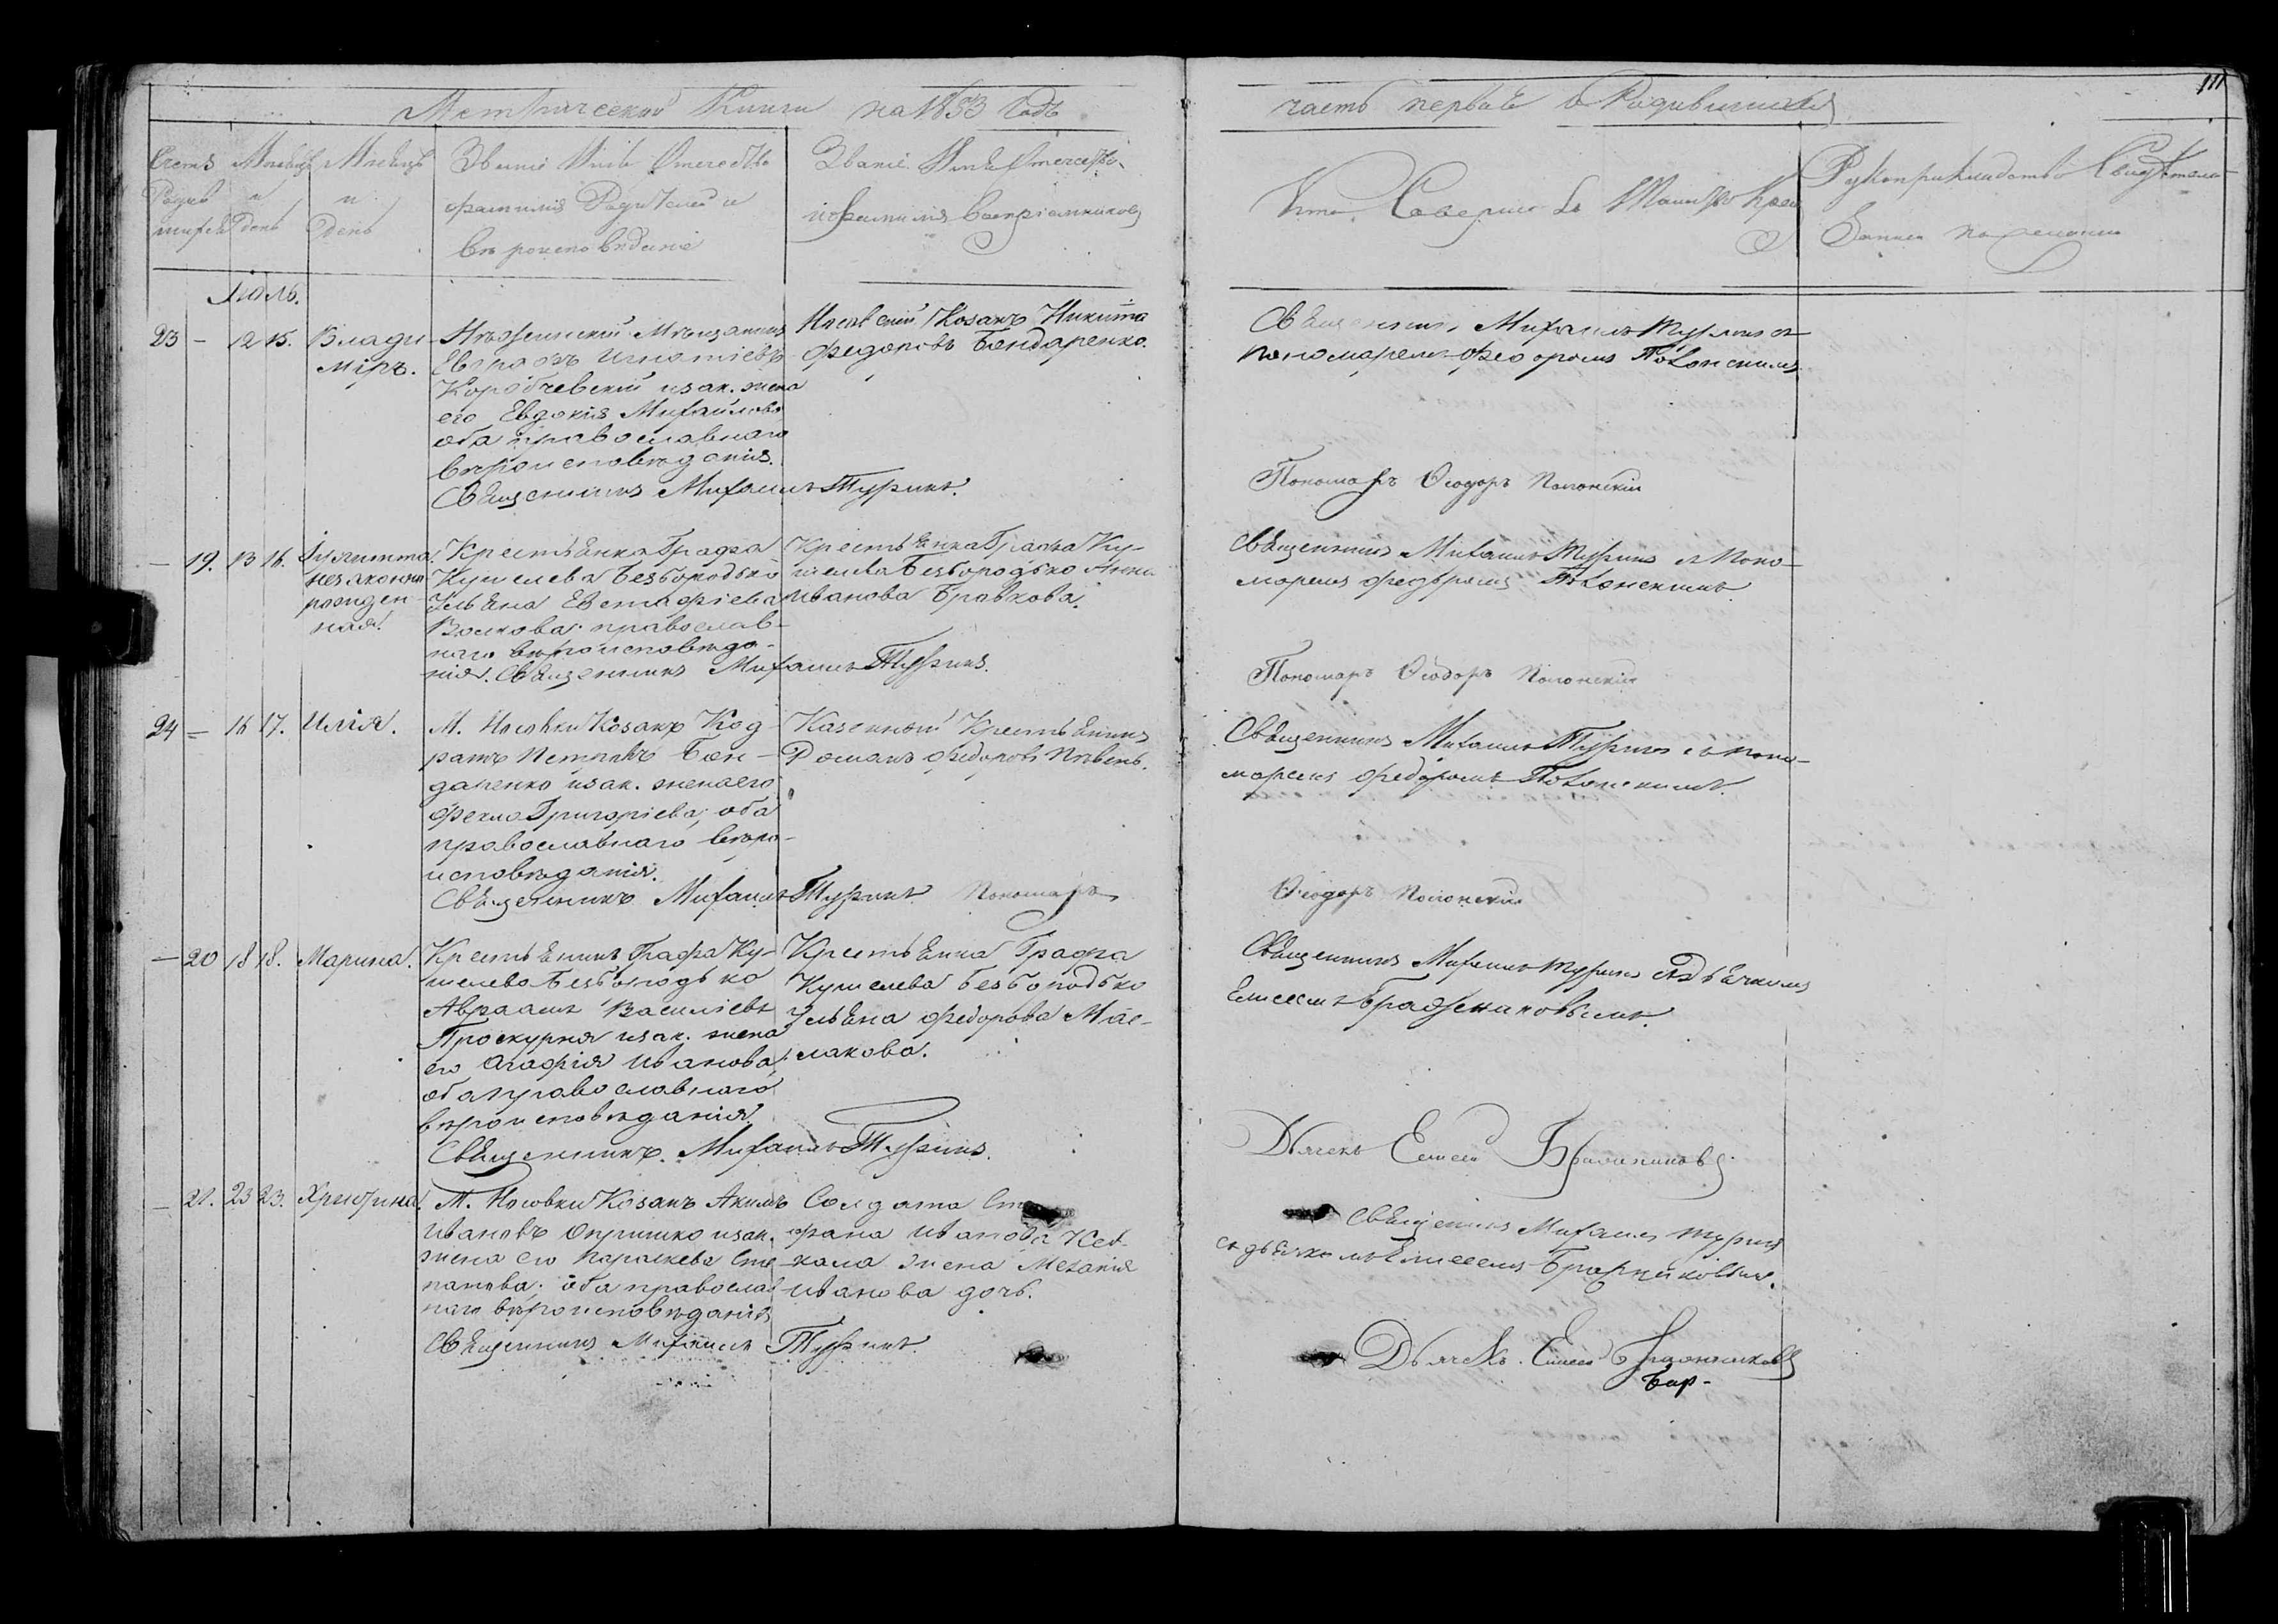 Метрической Книги на 1853 годъ
часть первая о Родившихся
111
Счетъ Мѣсяцъ Мѣсяцъ
и и
день день
Званіе Имя Отечество
фамилія Родителей и
вѣроисповѣданіе
Званіе Имя Отечество
и фамилія воспріемниковъ
Кто Совершалъ Таинство Крещ
Рукоприкладство Свидѣтелей
записи по желанію
Іюль.
23 - 12 15. Влади
міръ.
Нѣжинскій Мѣщанинъ
Игнатіевъ
Коробчевскій изак. жена
его Евдокія Михайлова
оба православнаго
вѣроисповѣданія.
Священникъ Михаилъ Туринъ.
Носовскій Козакъ Никита
Федоровъ Бондаренко.
Священникъ Михаилъ Туринъ съ
пономаремъ Феодоромъ Полонскимъ
Пономарь Ѳеодоръ Полонскій
- 19. 13 16. Іулитта
незаконно
рожден-
ная.
Крестьянка Графа
Кушелева Безбородько
Ульяна Евстафіева
Волкова православ-
наго вѣроисповѣда-
нія. Священникъ Михаилъ Туринъ.
Крестьянка Графа Ку-
шелева Безбородько Анна
Иванова Бравкова.
Священникъ Михаилъ Туринъ съ Поно-
маремъ Федоромъ Полонскимъ
Пономарь Ѳеодоръ Полонскій
24 - 16 17. Илія.
М. Носовки Козакъ Код
ратъ Петровъ Бон-
даренко изак. жена его
Фекла Григоріева, оба
православнаго вѣро-
исповѣданія.
Священникъ Михаилъ Туринъ Пономарь
Казенный Крестьянинъ
Романъ Федоровъ Пѣвень.
Священникъ Михаилъ Туринъ съ поно-
маремъ Федоромъ Полонскимъ.
Ѳеодоръ Полонскій
- 20 18 18. Марина.
Крестьянинъ Графа Ку-
шелева Безбородько
Авраамъ Василіевъ
Проскурня изак. жена
его Агафія Иванова,
оба православнаго
вѣроисповѣданія.
Священникъ Михаилъ Туринъ.
Крестьянка Графа
Кушелева Безбородько
Ульяна Федорова Мас-
лакова.
Священникъ Михаилъ Туринъ съ Дьячкомъ
Елисеемъ Бражниковымъ.
Дьячекъ Елисей Бражниковъ
- 21. 23 23. Христина.
М. Носовки Козакъ Акимъ
Ивановъ Опришко изак.
жена его Параскева Сте
панова, оба православ
наго вѣроисповѣданія
Священникъ Михаилъ Туринъ.
Солдата Сте
фана Иванова
жена Меланія
Иванова дочь.
Священникъ Михаилъ Туринъ
съ дьячкомъ Елисеемъ Бражниковымъ.
Дьячекъ Елисей Бражниковъ